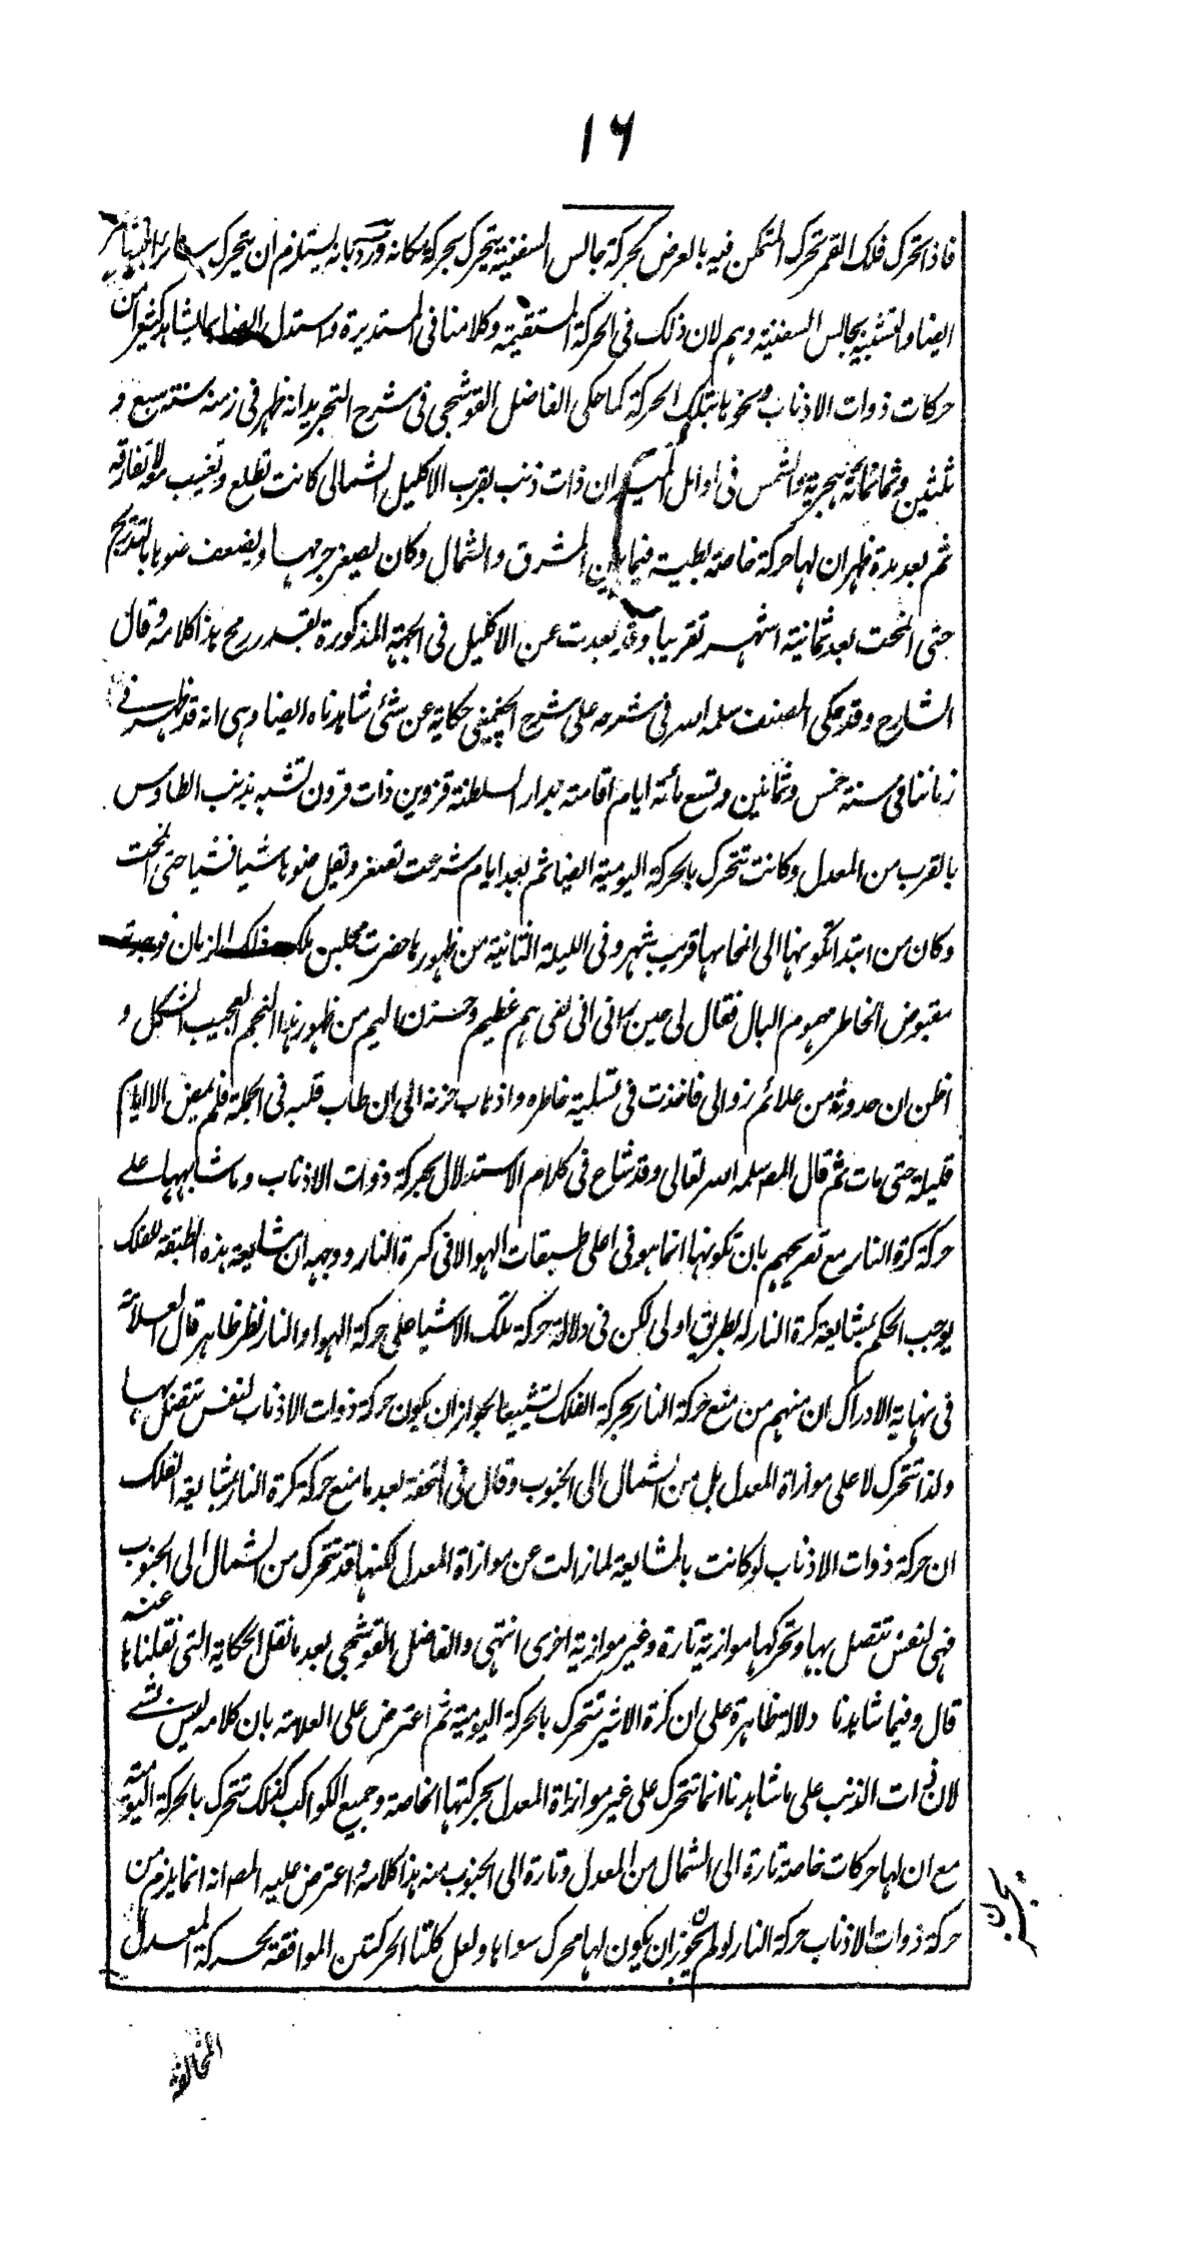 ١٦
فاذا تحرك فلك القمر تحرك المتمكن فيه بالعرض كحركة جالس السفينة يتحرك بحركة مكانه ورد بانه يستلزم ان يتحرك سائر العناصر
ايضا والتشبيه بجالس السفينة وهم لان ذلك فى الحركة المستقيمة وكلامنا فى المستديرة واستدل ايضا بما يشاهد كثيرا من
حركات ذوات الاذناب ونحوها بتلك الحركة كما حكى الفاضل القوشجى فى شرح التجريد انه ظهر فى زمنه سنة سبع و
ثلثين وثمانمائة هجرية والشمس فى اوائل الميزان ذات ذنب بقرب الاكليل الشمالى كانت تطلع وتغيب معه لا تفارقه
ثم بعد مدة ظهر ان لها حركة خاصة بطيئة فيما بين المشرق والشمال وكان يصغر جرمها ويضعف ضوءها بالتدريج
حتى انمحت بعد ثمانية اشهر تقريبا وقد بعدت عن الاكليل فى الجهة المذكورة بقدر رمح هذا كلامه وقال
الشارح وقد حكى المصنف سلمه الله فى شرحه على شرح الچغمينى حكاية عن شئ شاهدناه ايضا وهى انه قد ظهر فى
زماننا فى سنة خمس وثمانين وتسع مائة ايام اقامته بدار السلطنة قزوين ذات قرون تشبه بذنب الطاوس
بالقرب من المعدل وكانت تتحرك بالحركة اليومية ايضا ثم بعد ايام شرعت تصغر ويقل ضوءها شيئا فشيئا حتى انمحت
وكان من ابتداء تكونها الى انمحائها قريب شهر وفى الليلة الثانية من ظهورها حضرت مجلس ملك ذلك الزمان فوجدته
مقبوض الخاطر مهموم البال فقال لى حين رآنى انى لفى هم عظيم وحزن اليم من ظهور هذا النجم العجيب الشكل و
اظن ان حدوثه من علائم زوالى فاخذت فى تسلية خاطره واذهاب حزنه الى ان طاب قلبه فى الجملة فلم يمض الا ايام
قليلة حتى مات ثم قال المصـ سلمه الله تعالى وقد شاع فى كلامهم الاستدلال بحركة ذوات الاذناب وما شابهها على
حركة كرة النار مع تصريحهم بان تكونها انما هو فى اعلى طبقات الهوا لا فى كرة النار ووجهه ان مشايعة هذه الطبقة للفلك
يوجب الحكم بمشايعة كرة النار له بطريق اولى لكن فى دلالة حركة تلك الاشيا على حركة الهوا والنار نظر ظاهر قال العلامة
فى نهاية الادراك ان منهم من منع حركة النار بحركة الفلك تشييعا لجواز ان يكون حركة ذوات الاذناب لنفس تتصل بها
ولذا تتحرك لا على موازاة المعدل بل من الشمال الى الجنوب وقال فى التحفة بعد ما منع حركة كرة النار بمشايعة الفلك
ان حركة ذوات الاذناب لو كانت بالمشايعة لما زالت عن موازاة المعدل لكنها قد تتحرك من الشمال الى الجنوب
فهى لنفس تتصل بها وتحركها موازية تارة وغير موازية اخرى انتهى والفاضل القوشجى بعد ما نقل الحكاية التى نقلناها عنه
قال وفيما شاهدنا دلالة ظاهرة على ان كرة الاثير تتحرك بالحركة اليومية ثم اعترض على العلامة بان كلامه ليس بشئ
لان ذات الذنب على ما شاهدنا انما تتحرك على غير موازاة المعدل بحركتها الخاصة وجميع الكواكب كذلك تتحرك بالحركة اليومية
مع ان لها حركات خاصة تارة الى الشمال من المعدل وتارة الى الجنوب منه هذا كلامه واعترض عليه المصـ انه انما يلزم من
حركة ذوات الاذناب حركة النار لو لم يجوز ان يكون لها محرك سواها ولعل كلتا الحركتين الموافقة بحركة المعدل
المخالفة